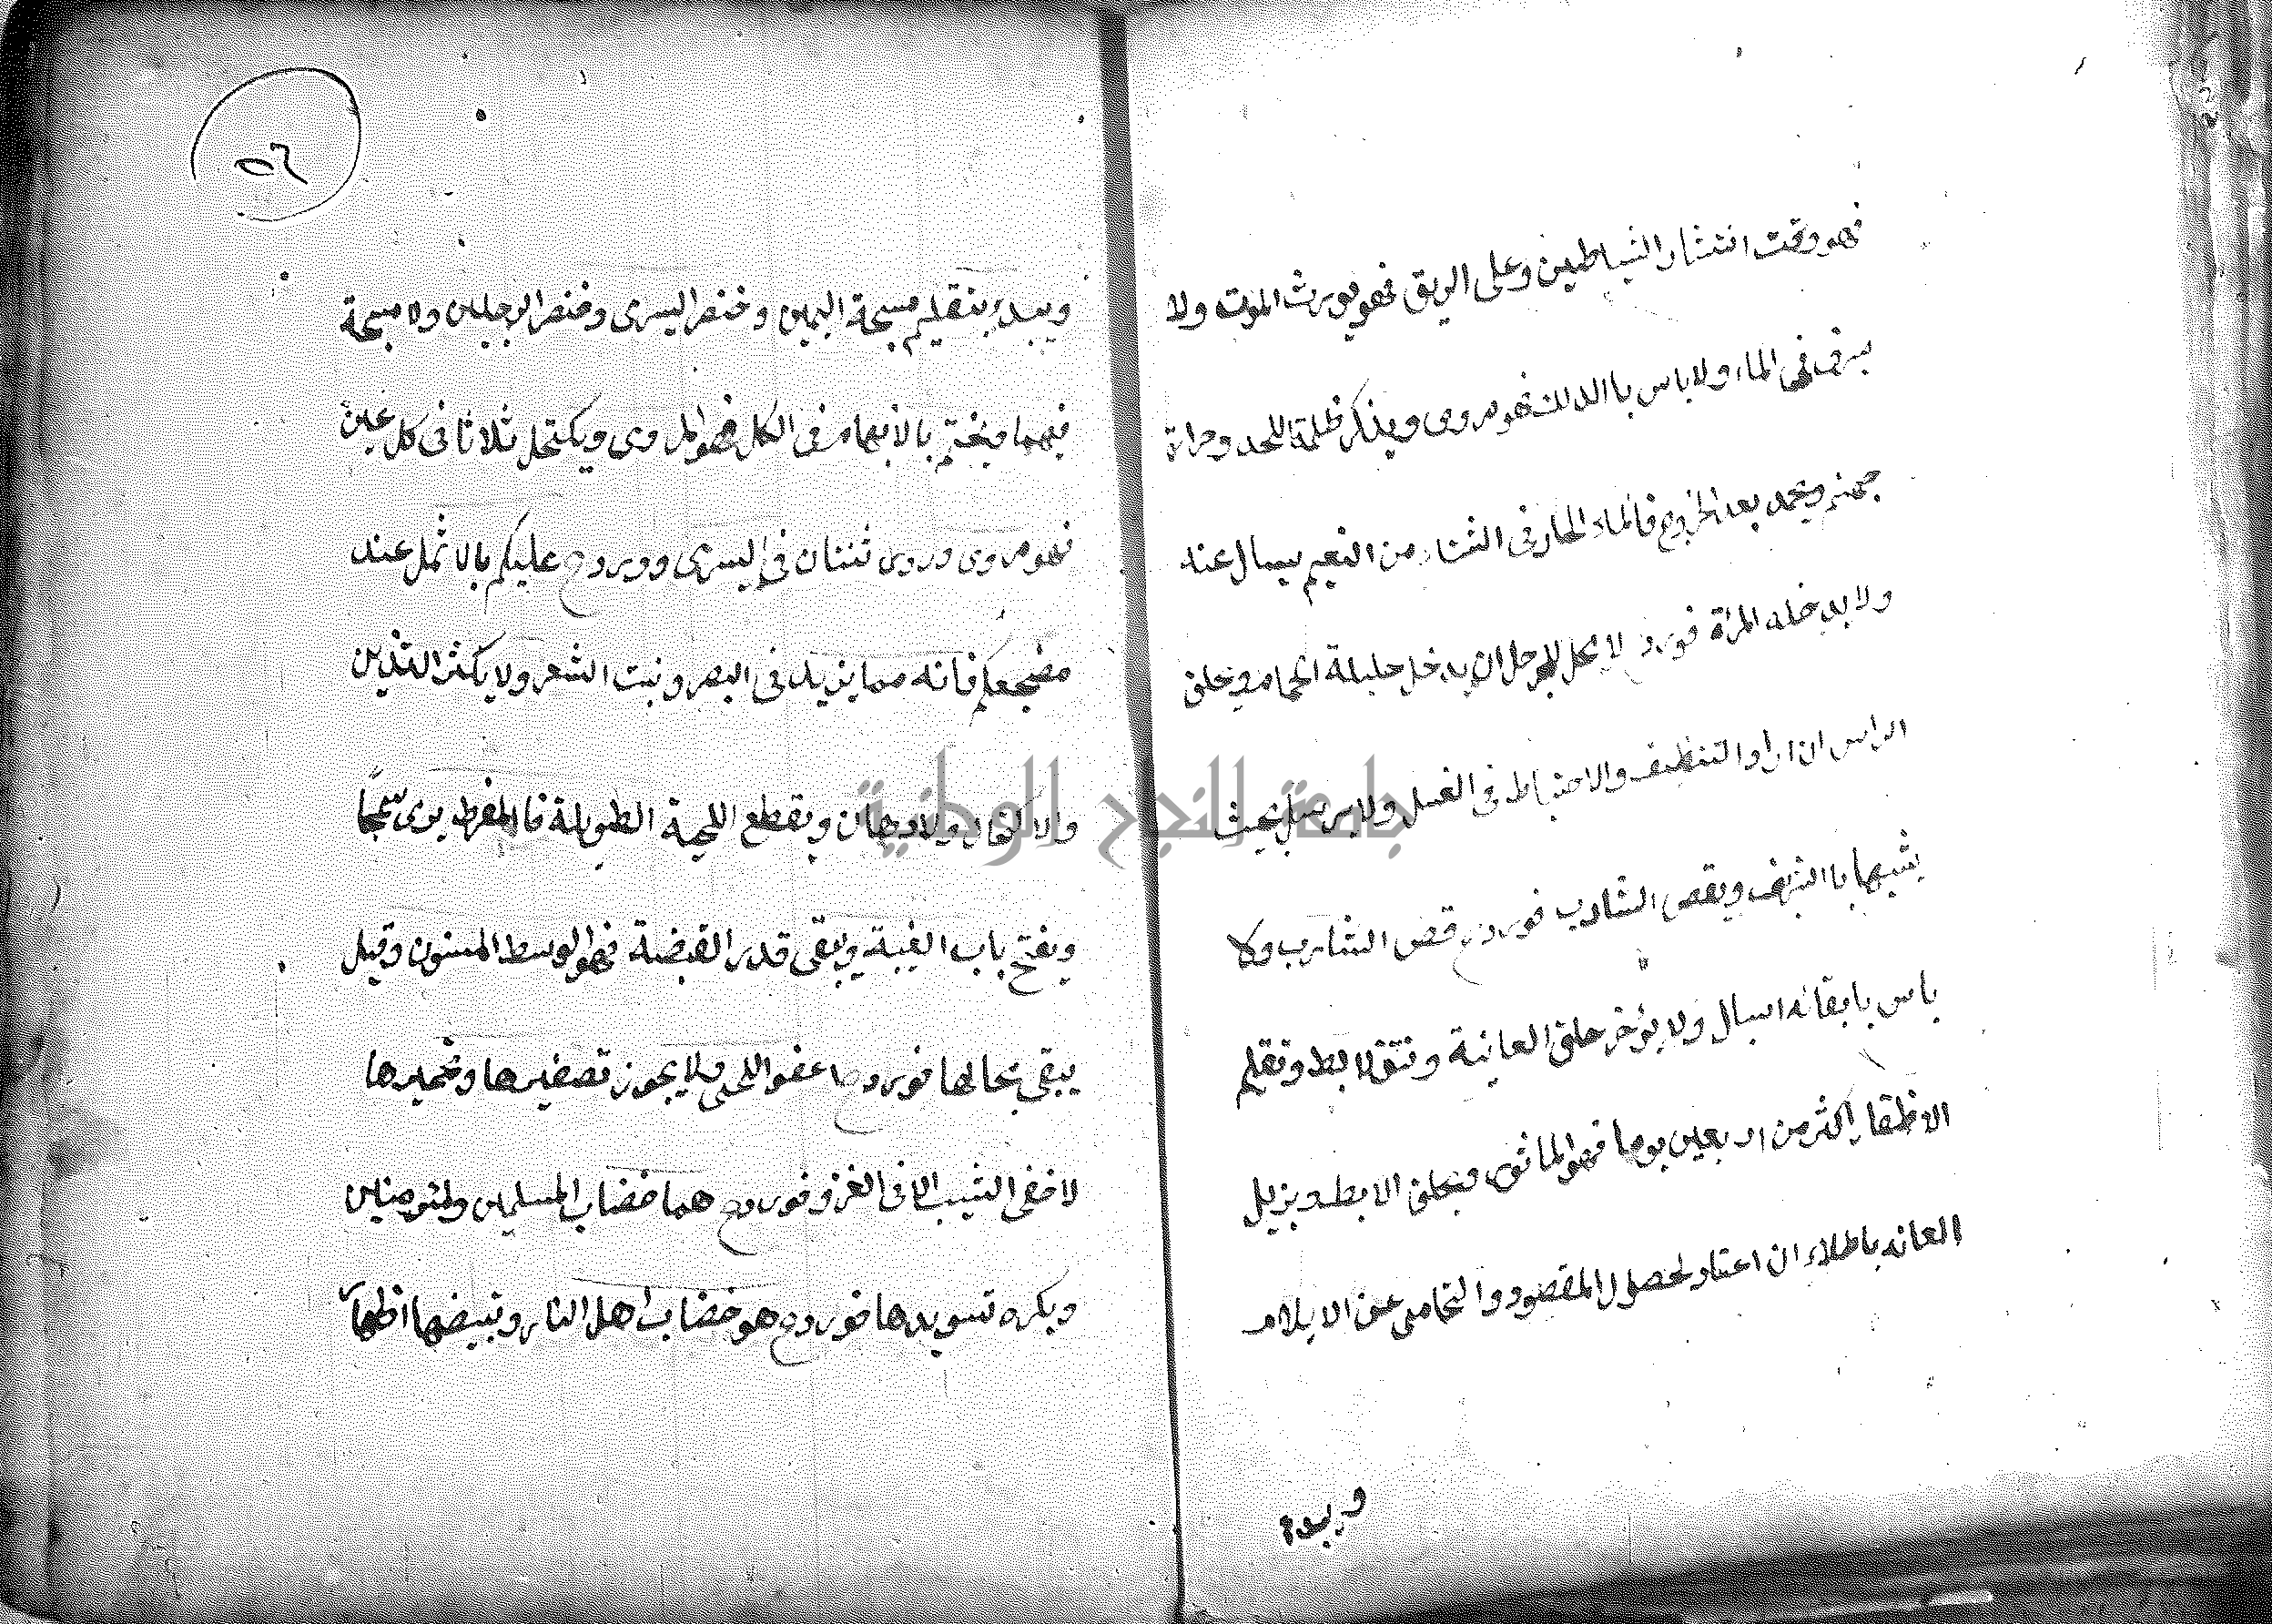 فهو وقت انتشار الشياطين وعلى الريق فهو يورث الموت ولا
يسرف في الماء ولا باس باالدلك فهو مروى ويذكر ظلمة اللحد وحرارة
جهنم ويحمد بعد الخروج فالماء الحار في الشتاء من النعيم يسال عنه
ولا يدخله المراة فورد لا يحل للرجل ان يدخل حليلة الحمام ويحلق
الراس ان اراد التنظيف والاحتياط في الغسل ولا يرسل بحيث
يشبها باالشرف ويقص الشارب فورد قص الشارب ولا
باس بابقائه اسبال ولا يؤخر حلق العانية ونتف الابط وتقليم
الاظفار اكثر من اربعين يوما فهو الماثور ويحلق الابط ويزيل
العانه باطلاء ان اعتاد لحصول المقصود والتحامى عن الايلام
ويبدء
٥٦
ويبدء بتقليم مسبحة اليمين وخنصر اليسرى وخنصر الرجلين ولا مسبحة
فيهما ويختم بالابهام في الكل فهو المروى ويكتحل ثلاثا في كل عين
فهو مروى وروى ثنتان في اليسرى وورد عليكم بالاثمد عند
مضجعكم فانه مما يزيد في البصر ونبت الشعر ولا يكثر التدين
والاكتحال ولادهان ويقطع اللحية الطويلة فالمفرط يرى سمجًا
ويفتح باب الغيبة ويبقى قدر القبضة فهو الوسط المسنون وقيل
يبقى بحالها فورد اعفو اللحى ولا يجوز تصفيرها وتحميرها
لاخفى الشيب الا في الغزو فورد هما خضاب المسلمين ولمئومنين
ويكره تسويدها فورد هو خضاب اهل النار وتبيضها اظهآ
جامعة النجاح الوطنية